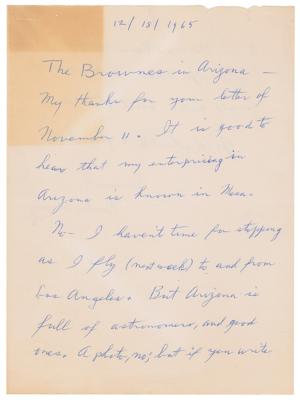 12/18/1965
The Brownes in Arizona —
My thanks for your letter of
November 11. It is good to
hear that my enterprising in
Arizona is known in Mesa.
No — I haven't time for stopping
as I fly (next week) to and from
Los Angeles. But Arizona is
full of astronomers, and good
ones. A photo, no; but if you write